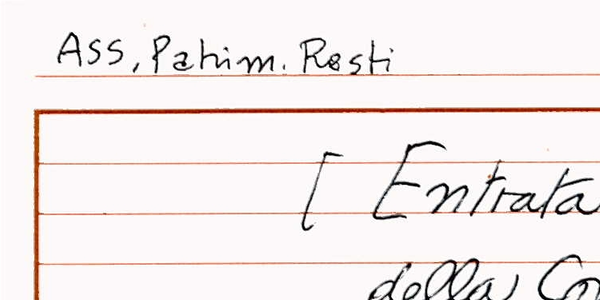 Ass, Patrim. Resti
[ Entrata
della Co